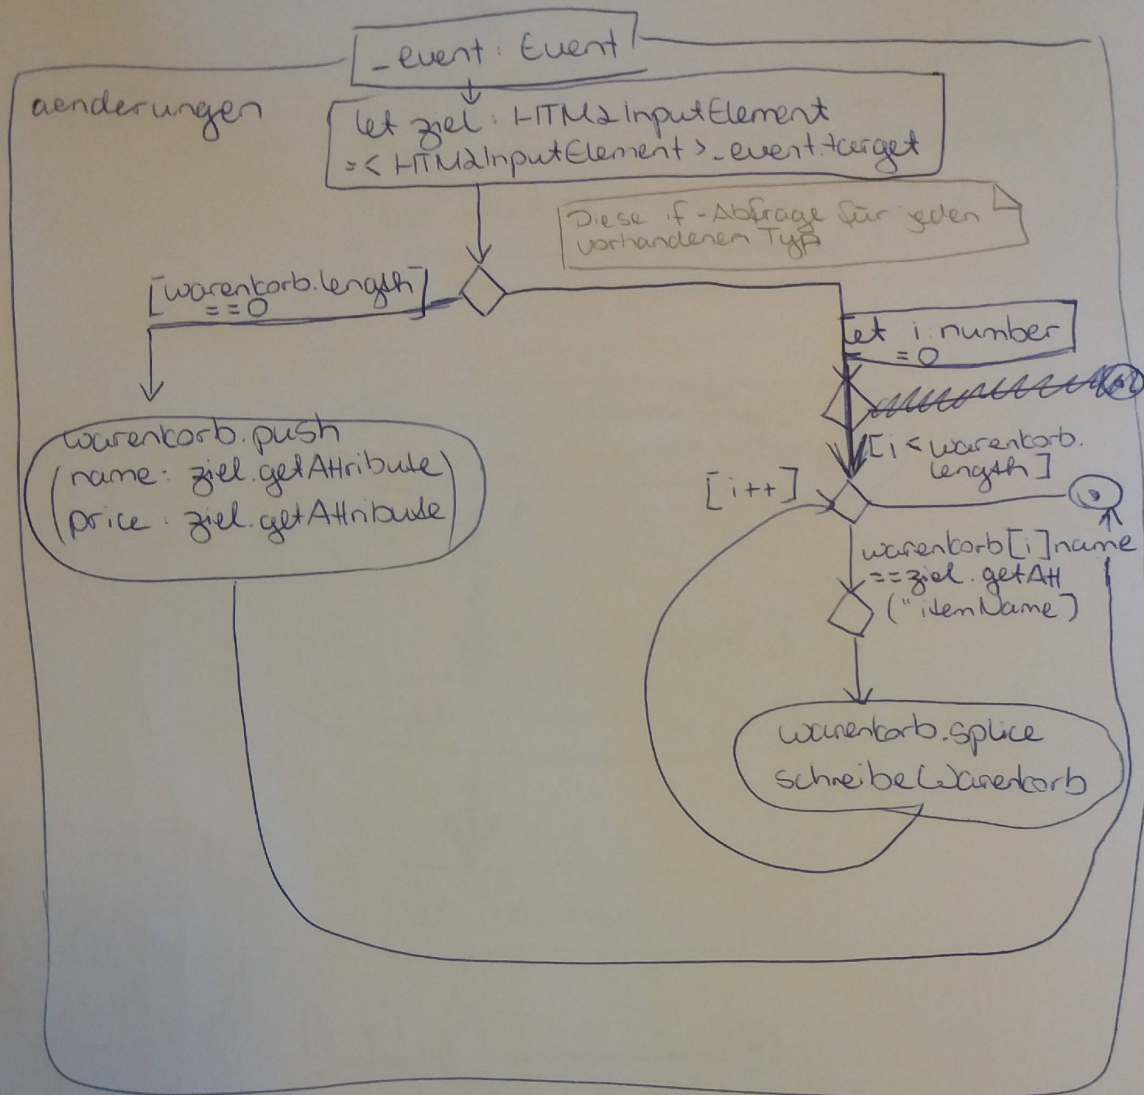 _event: Event
aenderungen
let ziel: HTMLInputElement
=<HTMLInputElement>_event.target
Diese if-Abfrage für jeden
vorhandenen Typ
[warenkorb.length]
==0
let i:number
=0
warenkorb.push
(name: ziel.getAttribute)
(price: ziel.getAttribute)
[i<warenkorb.
length]
[i++]
warenkorb[i]name
==ziel.getAtt
("itemName)
warenkorb.splice
schreibeWarenkorb